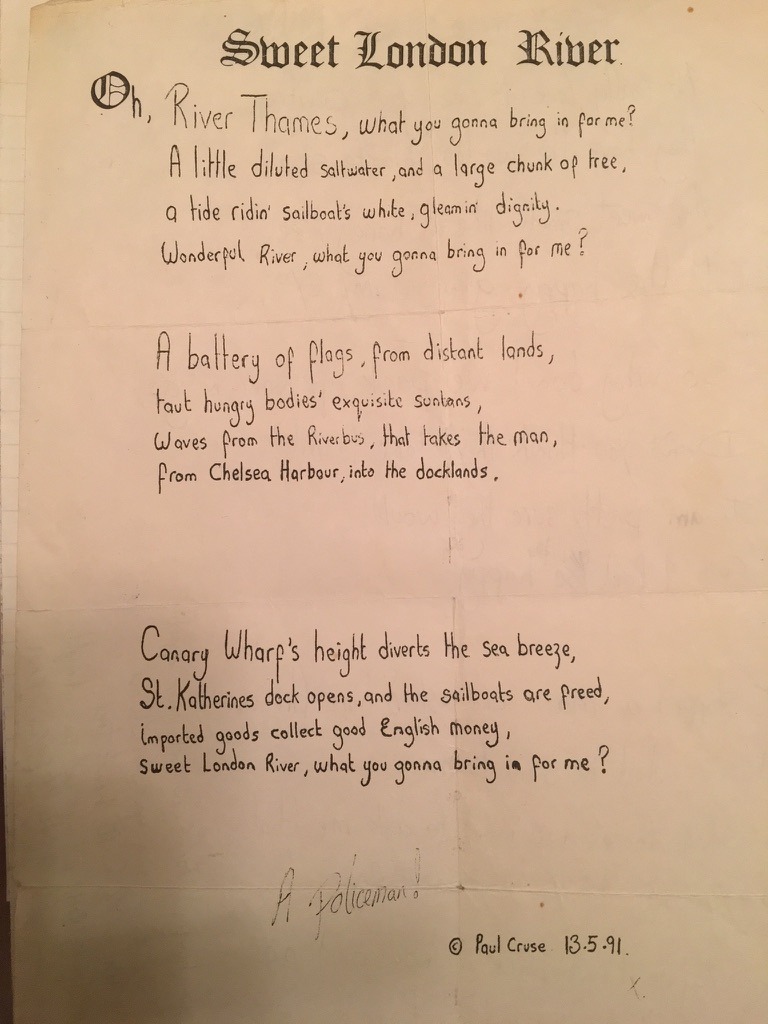 Sweet London River
Oh, River Thames, what you gonna bring in for me?
A little diluted saltwater, and a large chunk of tree,
a tide ridin' sailboat's white, gleamin' dignity.
Wonderful River, what you gonna bring in for me?
A battery of flags, from distant lands,
taut hungry bodies' exquisite suntans,
Waves from the Riverbus, that takes the man,
from Chelsea Harbour, into the docklands.
Canary Wharf's height diverts the sea breeze,
St. Katherines dock opens, and the sailboats are freed,
imported goods collect good English money,
Sweet London River, what you gonna bring in for me?
A Policeman!
© Paul Cruse 13.5.91.